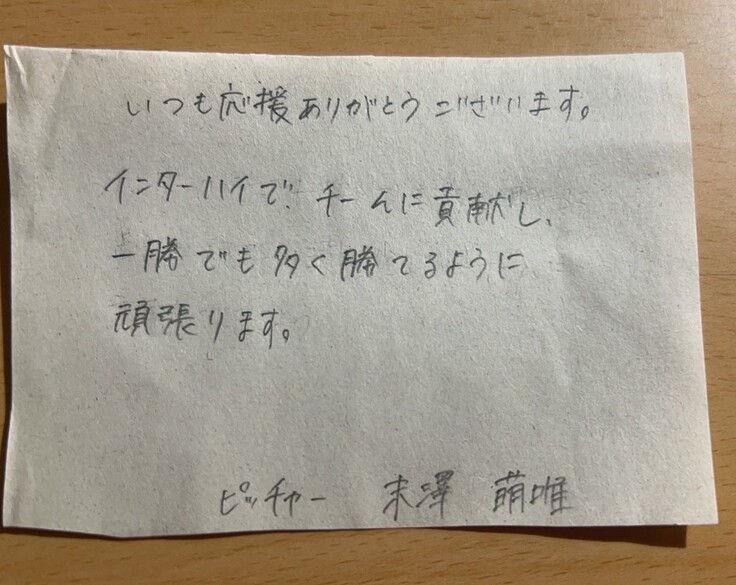 いつも応援ありがとうございます。
インターハイで、チームに貢献し、
一勝でも多く勝てるように
頑張ります。
ピッチャー 末澤 萌唯